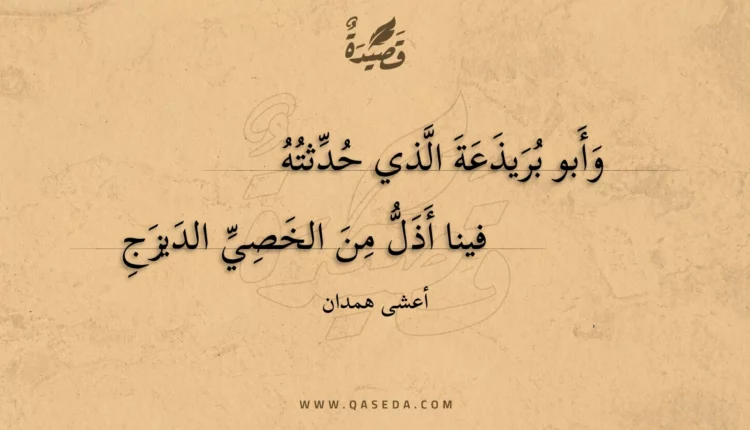 قَصِيْدَةٌ
وَأَبو بُرَيذَعَةَ الَّذي حُدِّثتُهُ
فينا أَذَلُّ مِنَ الخَصِيِّ الدَيزَجِ
أعشى همدان
WWW.QASEDA.COM